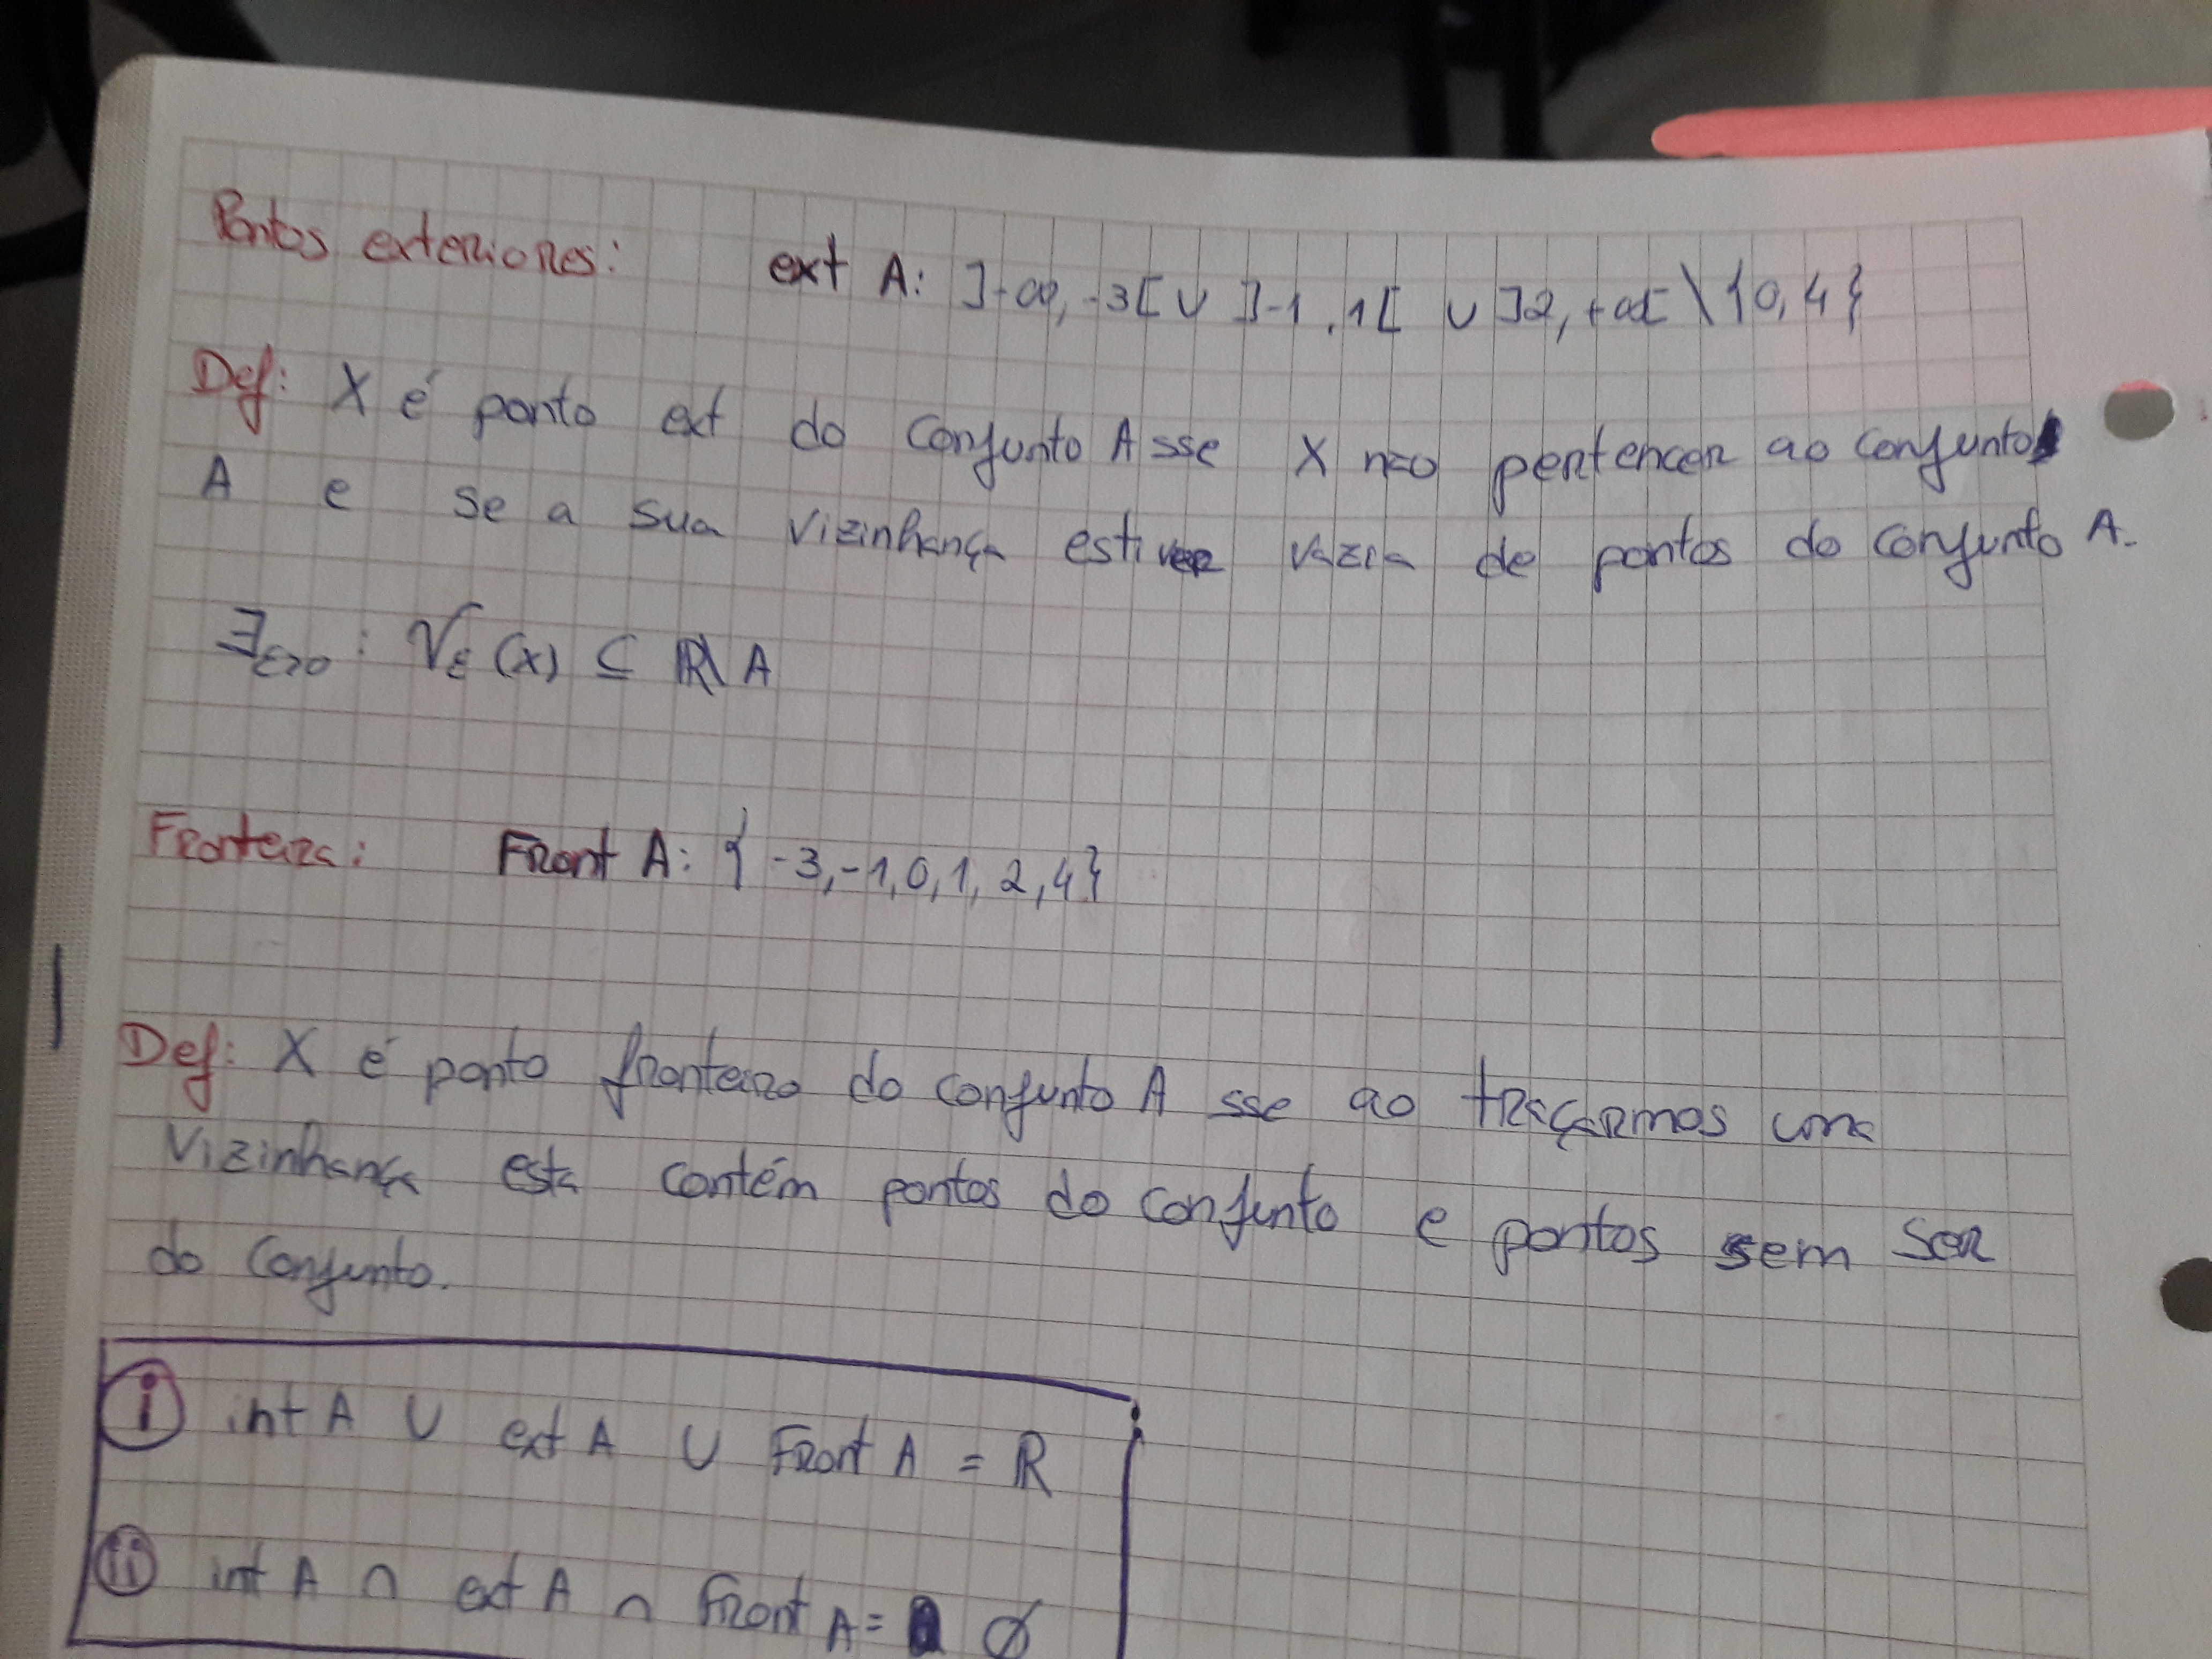 Pontos exteriores: ext A: ]-∞, -3[ ∪ ]-1, 1[ ∪ ]2, +∞[ \ {0, 4}
Def: X é ponto ext do conjunto A sse X não pertencer ao conjunto
A e se a sua vizinhança estiver vazia de pontos do conjunto A.
∃ε>0 : Vε (x) ⊆ ℝ\A
Fronteira: Front A: {-3, -1, 0, 1, 2, 4}
Def: X é ponto fronteiro do conjunto A sse ao traçarmos uma
vizinhança esta contém pontos do conjunto e pontos sem ser
do conjunto.
i int A ∪ ext A ∪ Front A = ℝ
ii int A ∩ ext A ∩ Front A = ∅